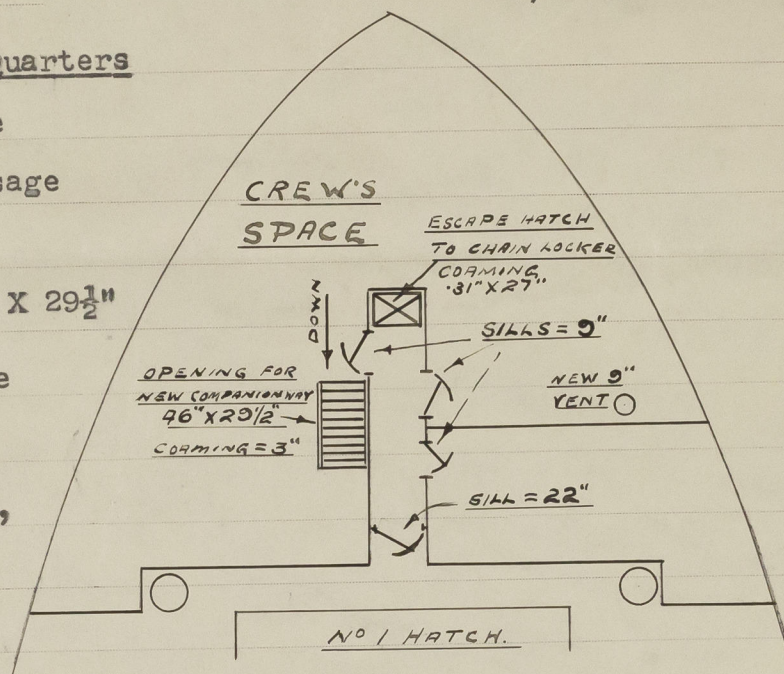 quarters
e
sage
X 29½"
e
,
CREW'S
SPACE
ESCAPE HATCH
TO CHAIN LOCKER
COAMING
31" X 27"
DOWN
SILLS = 9"
OPENING FOR
NEW COMPANIONWAY
46" X 29½"
COAMING = 3"
NEW 9"
VENT
SILL = 22"
No 1 HATCH.